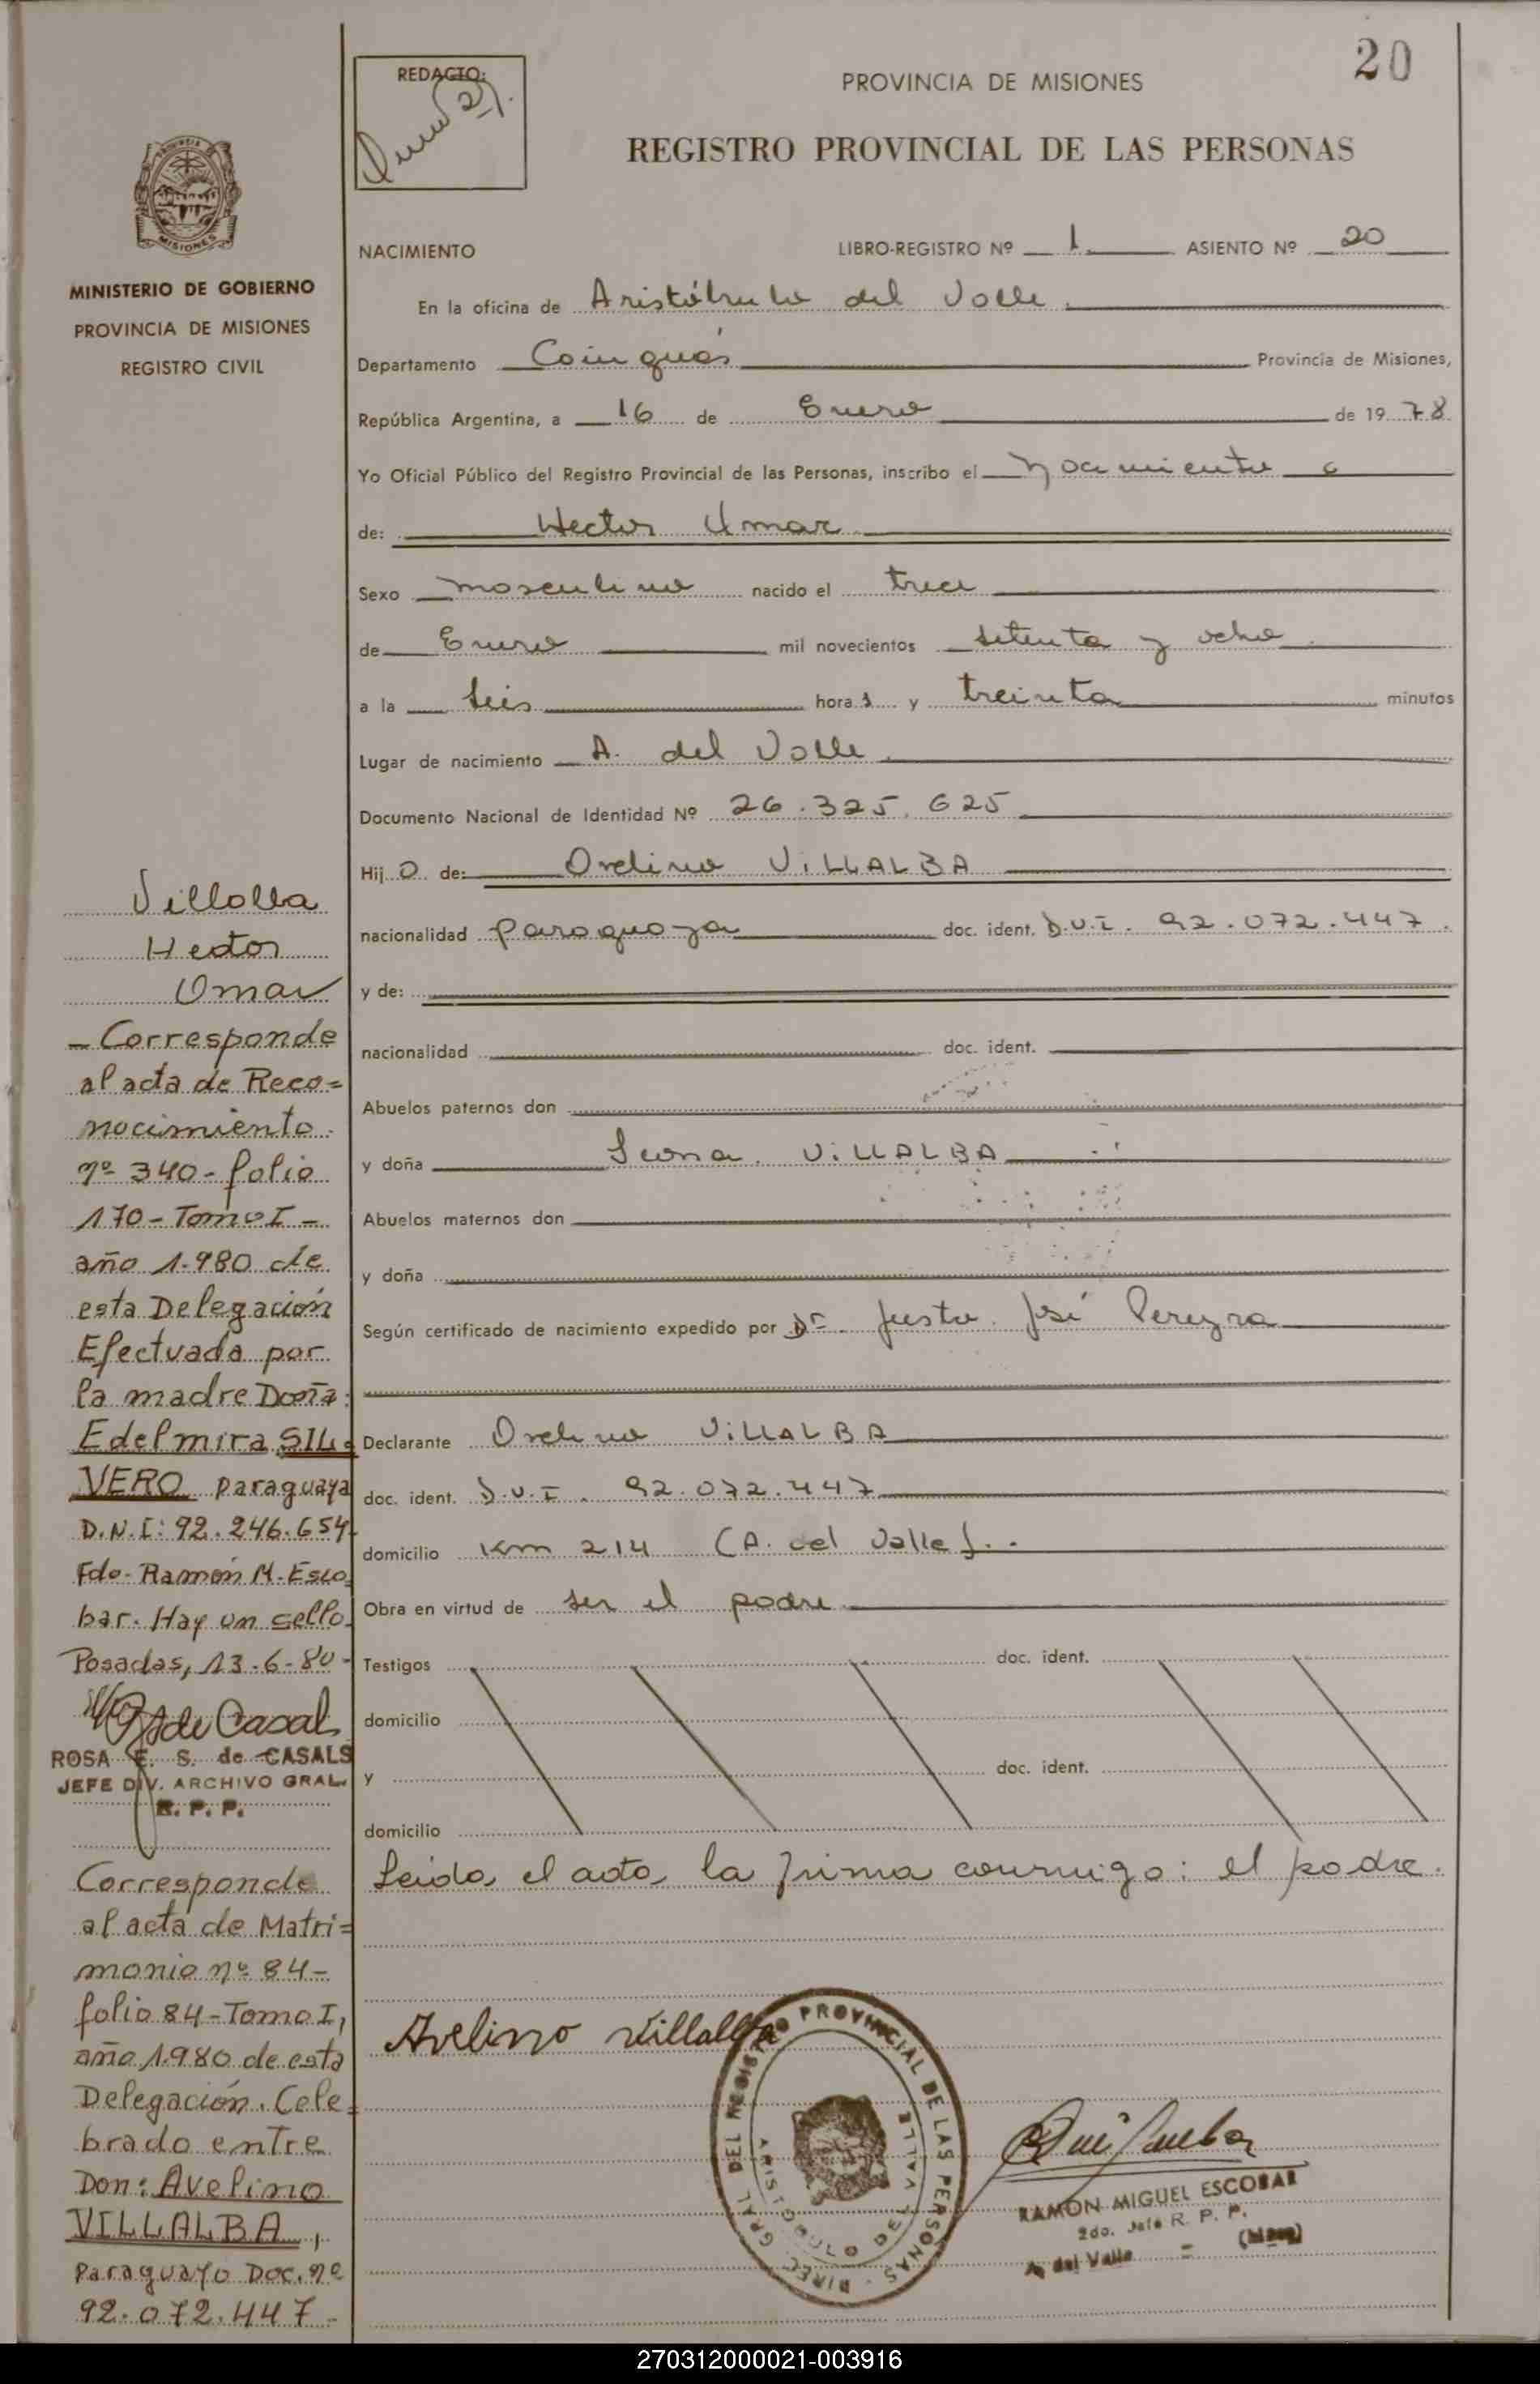 20
REDACTO:
PROVINCIA DE MISIONES
REGISTRO PROVINCIAL DE LAS PERSONAS
MISIONES
MINISTERIO DE GOBIERNO
PROVINCIA DE MISIONES
REGISTRO CIVIL
NACIMIENTO LIBRO-REGISTRO Nº 1 ASIENTO Nº 20
En la oficina de Aristóbulo del Valle
Departamento Cainguás Provincia de Misiones,
República Argentina, a 16 de Enero de 1978
Yo Oficial Público del Registro Provincial de las Personas, inscribo el Nacimiento
de: Hector Omar
Sexo masculino nacido el trece
de Enero mil novecientos setenta y ocho
a la seis hora s y treinta minutos
Lugar de nacimiento A. del Valle
Documento Nacional de Identidad Nº 26.325.625
Hij o de: Ovelino VILLALBA
nacionalidad paraguaya doc. ident. D.N.I. 92.072.447.
y de:
nacionalidad doc. ident.
Abuelos paternos don
y doña VILLALBA
Abuelos maternos don
y doña
Según certificado de nacimiento expedido por Dr. Justo José Pereyra
Declarante Ovelino VILLALBA
doc. ident. D.N.I. 92.072.447
domicilio Km 214 (A. del Valle).
Obra en virtud de ser el padre
Testigos doc. ident.
domicilio
y doc. ident.
domicilio
Leida el acta, la firma conmigo: el padre.
Avelino Villalba
DIREC. GRAL DEL REGISTRO PROVINCIAL DE LAS PERSONAS
ARISTOBULO DEL VALLE
RAMON MIGUEL ESCOBAR
2do. Jefe R. P. P.
A. del Valle = (Mnes)
Villalba
Hector
Omar
- Corresponde
al acta de Reco=
nocimiento
nº 340- folio
170- Tomo I -
año 1.980 de
esta Delegación
Efectuada por
la madre Doña:
Edelmira SIL=
VERO paraguaya
D.N.I: 92.246.654
Fdo- Ramón M. Esco
bar. Hay un sello
Posadas, 13-6-80-
ROSA E. S. de CASALS
JEFE DIV. ARCHIVO GRAL.
R. P. P.
Corresponde
al acta de Matri=
monio nº 84-
folio 84-Tomo I,
año 1.980 de esta
Delegación. Cele=
brado entre
Don: Avelino
VILLALBA,
Paraguayo Doc. nº
92.072.447-
270312000021-003916